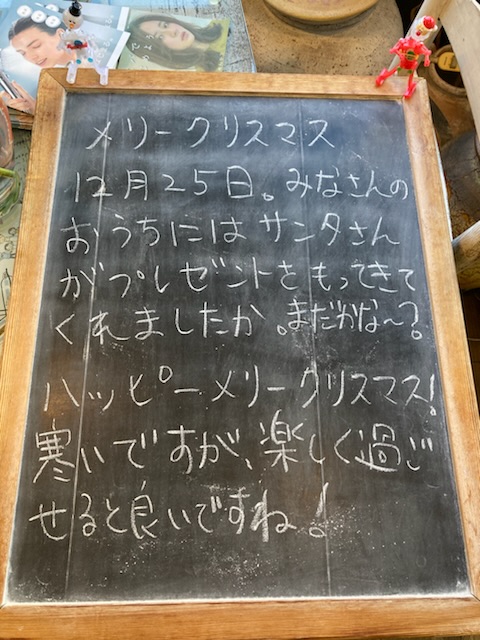 メリークリスマス
12月25日。みなさんの
おうちにはサンタさん
がプレゼントをもってきて
くれましたか。まだかな〜?
ハッピーメリークリスマス!
寒いですが、楽しく過ご
せると良いですね!